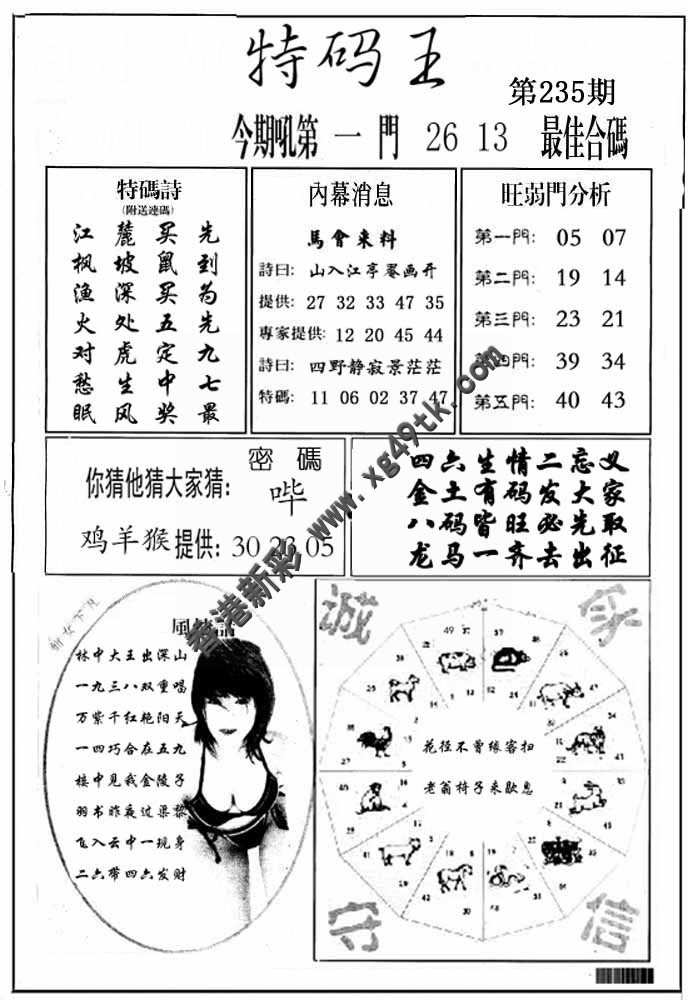 特码王
第235期
今期吼第一門 26 13 最佳合碼
特碼詩
(附送連碼)
江麓买先
枫坡鼠到
渔深买为
火处五先
对虎定九
愁生中七
眠风奖最
內幕消息
馬會来料
詩曰: 山入江亭罨画开
提供: 27 32 33 47 35
專家提供: 12 20 45 44
詩曰: 四野静寂景茫茫
特碼: 11 06 02 37 47
旺弱門分析
第一門: 05 07
第二門: 19 14
第三門: 23 21
第四門: 39 34
第五門: 40 43
密碼
你猜他猜大家猜: 哔
鸡羊猴提供: 30 23 05
四六生情二忘义
金土有码发大家
八码皆旺必先取
龙马一齐去出征
仙女下凡
林中大王出深山
一九三八双重唱
万紫千红艳阳天
一四巧合在五九
楼中见我金陵子
羽书昨夜过渠黎
飞入云中一现身
二六带四六发财
诚
守
信
花径不曾缘客扫
老翁椅子来歇息
www.xg49tk.com
香港新彩